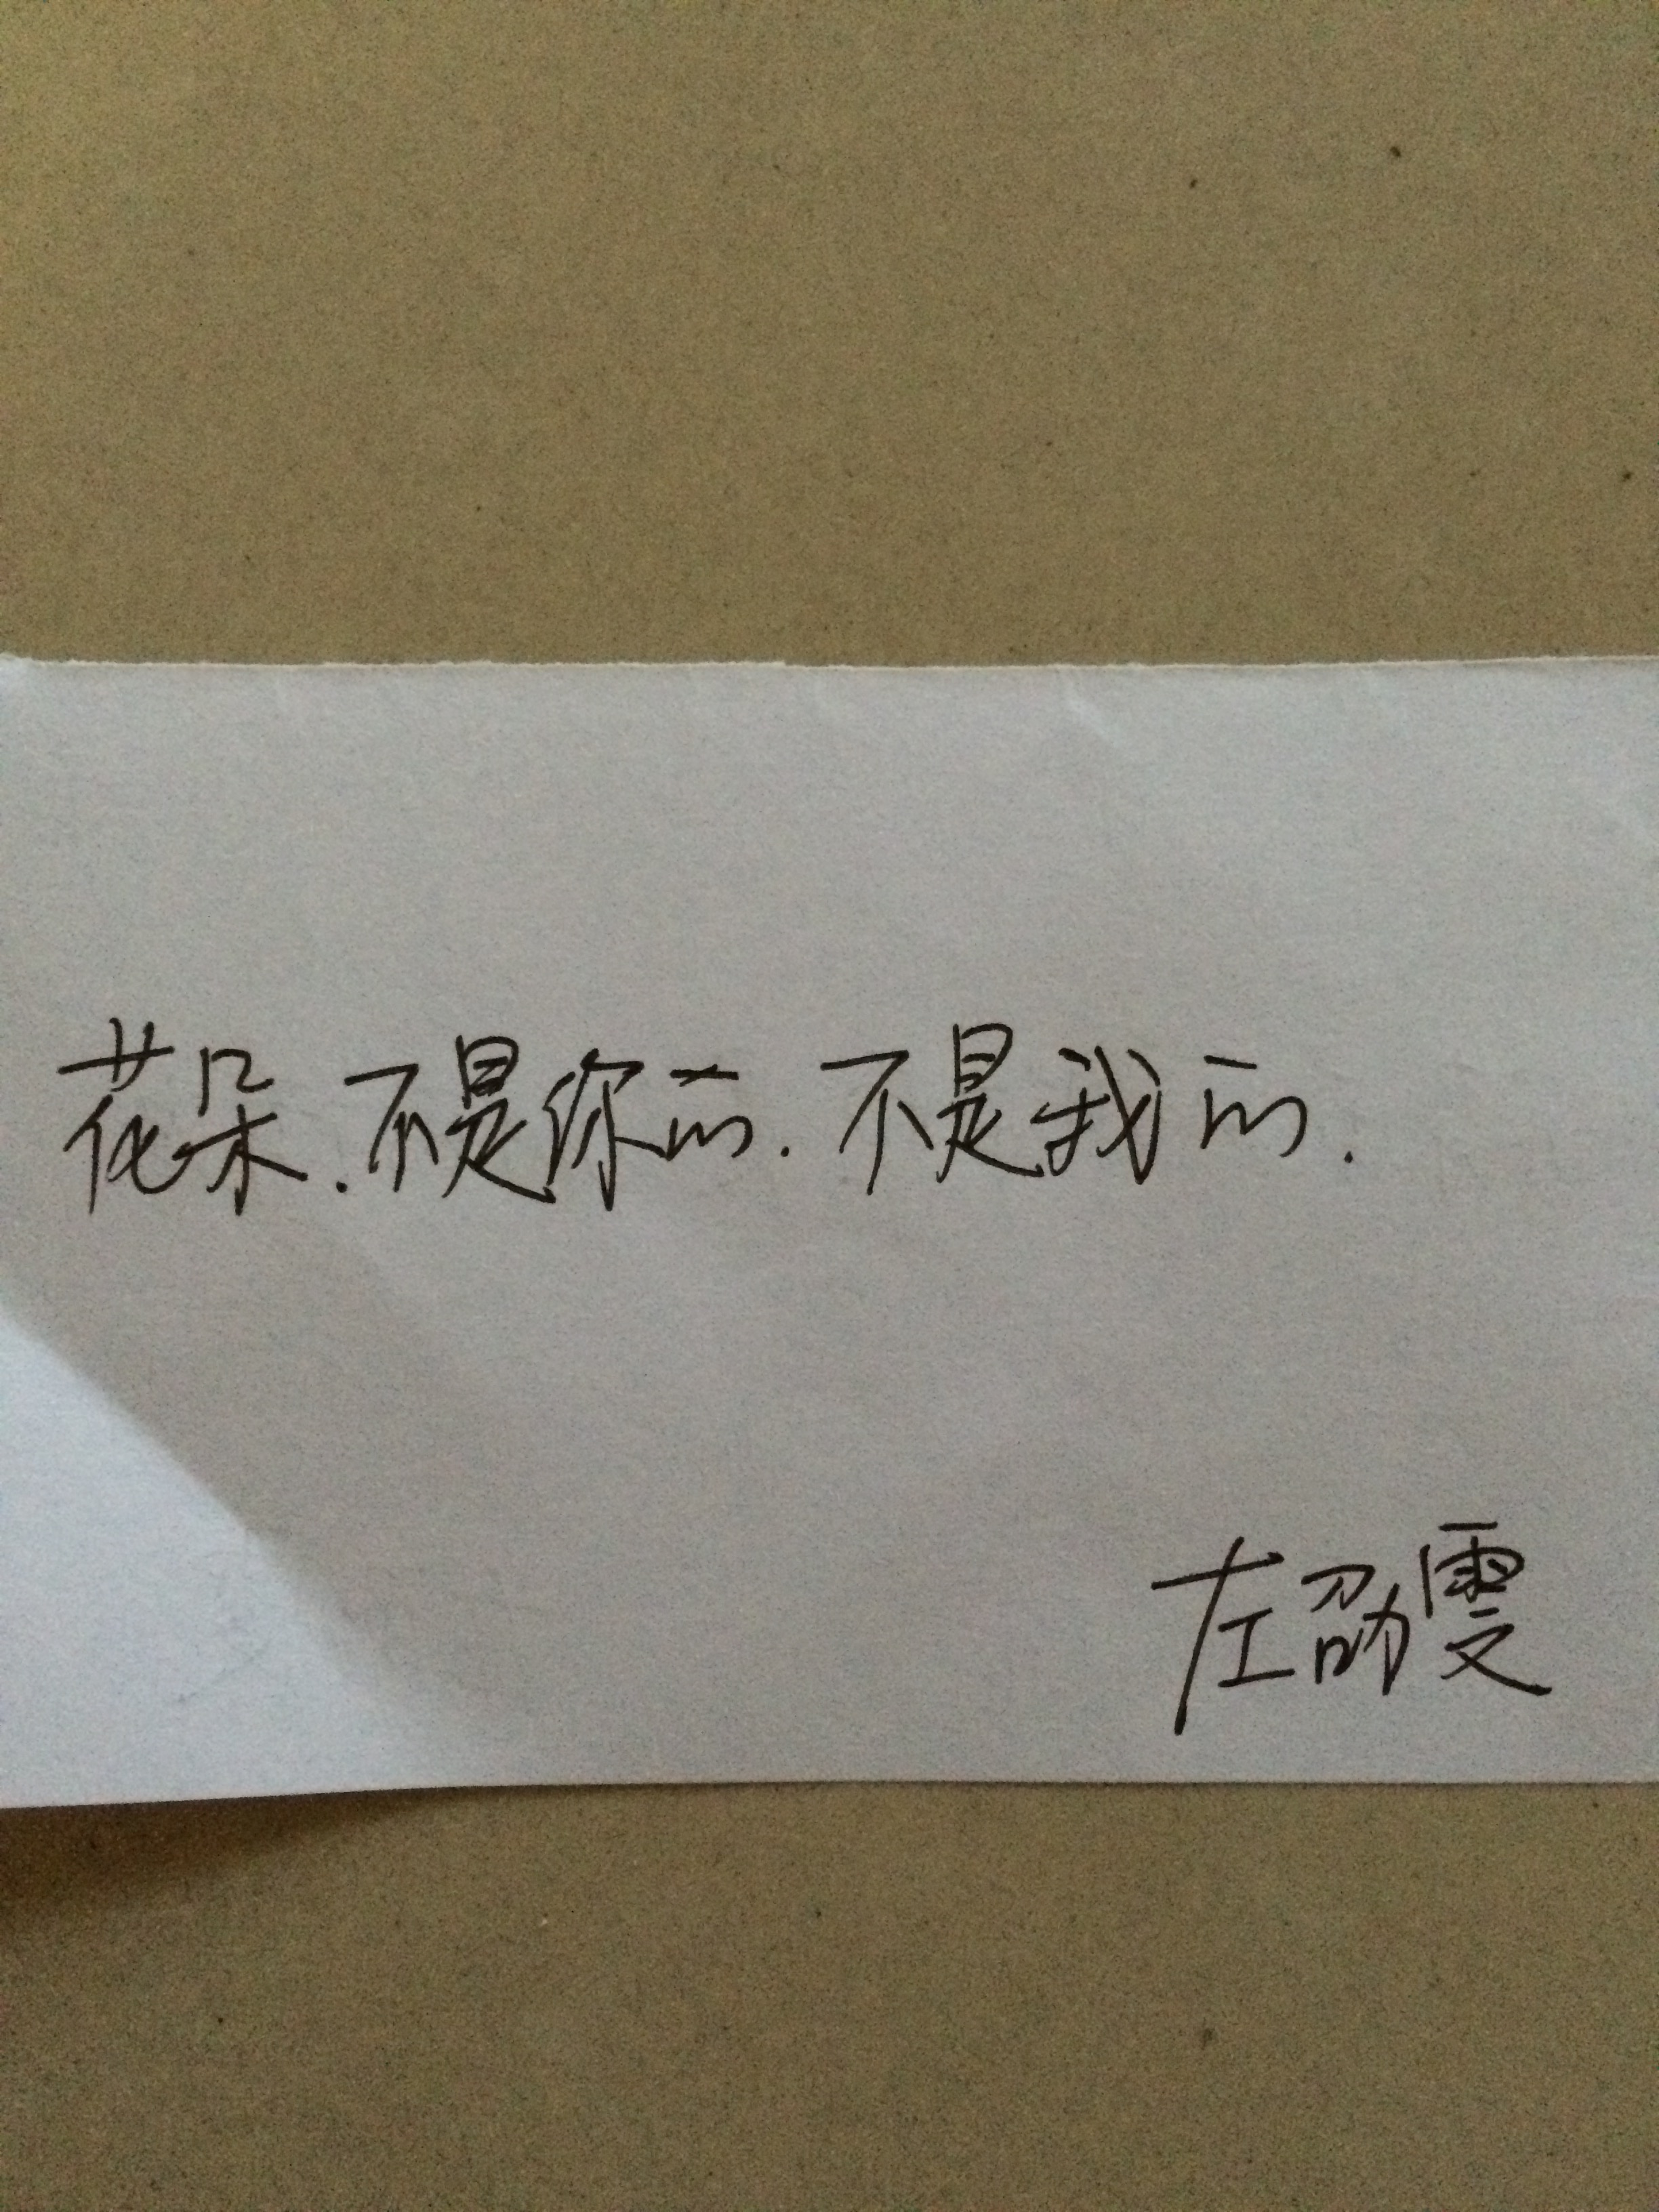 花朵.不是你的.不是我的.
左劭雯